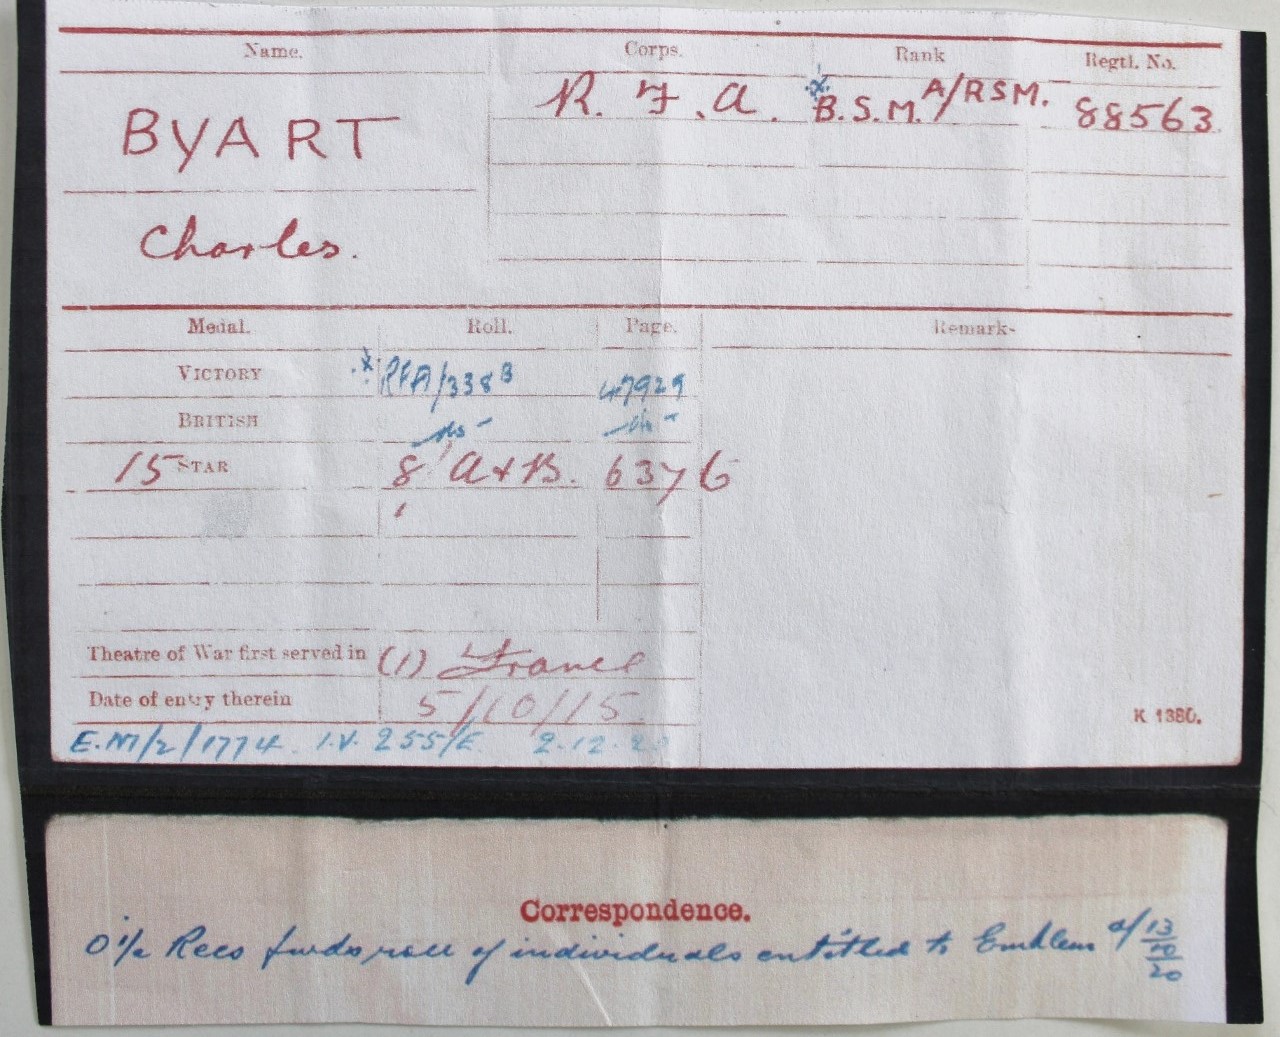 Name. Corps. Rank Regtl. No.
BYART R. F. A. B.S.M. A/RSM. 88563.
Charles.
Medal. Roll. Page. Remark-
VICTORY RFA/338B 47929
BRITISH do - do -
15 STAR 8 A+B. 6376
Theatre of War first served in (1) France
Date of entry therein 5/10/15.
K 1380.
E.M/2/1774. I.V. 255/E. 2.12.20
Correspondence.
O i/c Recs fwds roll of individuals entitled to Emblem d/ 13/10/20